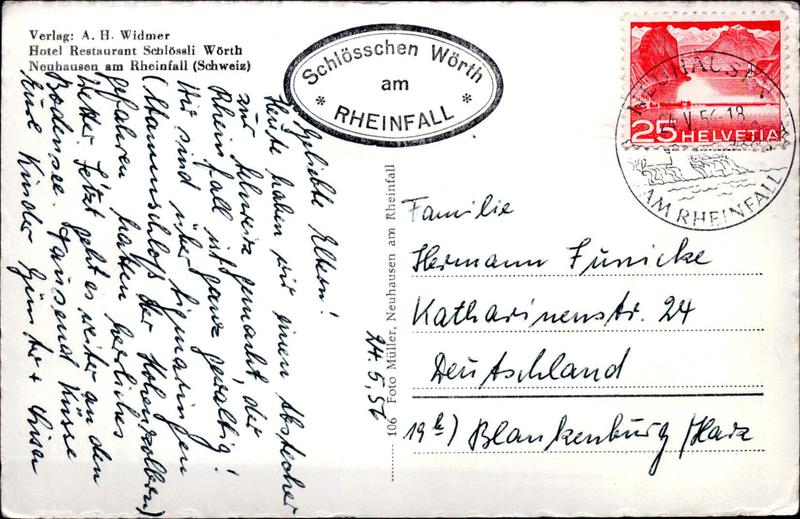 Verlag: A. H. Widmer
Hotel Restaurant Schlössli Wörth
Neuhausen am Rheinfall (Schweiz)
Schlösschen Wörth
* am *
RHEINFALL
25 HELVETIA
NEUHAUSEN
24.V.56-18
AM RHEINFALL
Geliebte Eltern!
Heute haben wir einen Abstecher
zur Schweiz gemacht, der
Rheinfall ist ganz gewaltig!
Wir sind über Sigmaringen
(Stammschloß der Hohenzollern)
gefahren, hatten herrliches
Wetter. Jetzt geht es weiter an den
Bodensee. Tausend Küsse
Eure Kinder Günter +
24.5.56
106 Foto Müller, Neuhausen am Rheinfall
Familie
Hermann Fünicke
Katharinenstr. 24
Deutschland
19b) Blankenburg/Harz